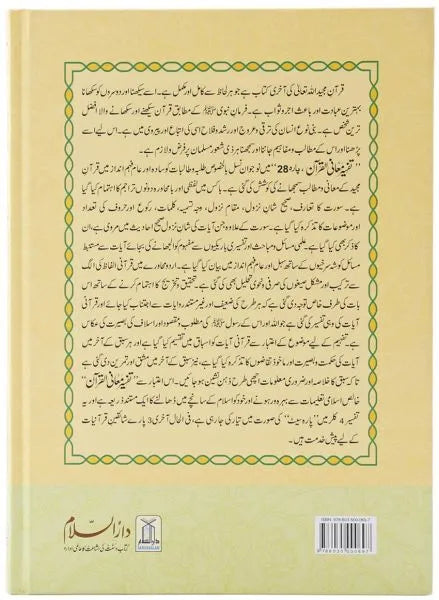 قرآن مجید اللہ تعالیٰ کی آخری کتاب ہے جو ہر لحاظ سے کامل اور مکمل ہے۔ اسے سیکھنا اور دوسروں کو سکھانا
بہترین عبادت اور باعث اجر و ثواب ہے۔ فرمانِ نبوی ﷺ کے مطابق قرآن سیکھنے اور سکھانے والا افضل
ترین شخص ہے۔ بنی نوع انسان کی ترقی و عروج اور رشد و فلاح اسی کی اتباع اور پیروی میں ہے۔ اس لیے اسے
پڑھنا اور اس کے مطالب و مفاہیم جاننا اور سمجھنا ہر ذی شعور مسلمان پر فرض و لازم ہے۔
معانی القرآن، پارہ 28" میں نوجوان نسل بالخصوص طلبہ و طالبات کو سادہ اور عام فہم انداز میں قرآن
مجید کے معانی و مطالب سمجھانے کی کوشش کی گئی ہے۔ باکس میں لفظی اور بامحاورہ دونوں تراجم کا اہتمام کیا گیا
ہے۔ سورت کا تعارف، صحیح شان نزول، مقام نزول، وجہ تسمیہ، کلمات، رکوع اور حروف کی تعداد
اور موضوعات کا تذکرہ کیا گیا ہے۔ سورت کے علاوہ جن آیات کی شان نزول صحیح احادیث میں مروی ہے، ان
کا ذکر بھی کیا گیا ہے۔ علمی مسائل و مباحث اور تفسیری باریکیوں سے مفہوم کو الجھانے کی بجائے آیات سے مستنبط
مسائل کو شذ سرخیوں کے ساتھ سہل اور عام فہم انداز میں بیان کیا گیا ہے۔ اردو محاورے میں قرآنی الفاظ کی الگ
سے ترکیب اور مشکل صیغوں کی صرفی و نحوی تحلیل بھی کی گئی ہے۔ تحقیق و تخریج کا اہتمام کرنے کے ساتھ اس
بات کی طرف خاص توجہ دی گئی ہے کہ ہر طرح کی ضعیف اور غیر مستند روایات سے اجتناب کیا جائے اور قرآنی
آیات کی وہی تفسیر کی گئی ہے جو اللہ اور اس کے رسول ﷺ کی مطلوب و مقصود اور اسلاف کی بصیرت کی عکاس
ہے۔ تفہیم کے لیے موضوع کے اعتبار سے قرآنی آیات کو اسباق میں تقسیم کیا گیا ہے اور ہر سبق کے آخر میں
آیات کی حکمت و بصیرت اور ماخوذ تقاضوں کا تذکرہ کیا گیا ہے، نیز سبق کے آخر میں مشق اور تمرین دی گئی ہے
تاکہ سبق کا خلاصہ اور ضروری معلومات اچھی طرح ذہن نشین ہو جائیں۔ اس اعتبار سے معانی القرآن"
خالص اسلامی تعلیمات سے بہرہ ور ہونے اور خود کو اسلام کے سانچے میں ڈھالنے کا ایک مستند ذریعہ ہے اور یہ
تفسیر 4 کلر میں "پارہ سیٹ" کی صورت میں تیار کی جا رہی ہے، فی الحال آخری 3 پارے شائقین قرآنیات
کے لیے پیش خدمت ہیں۔
دارالسلام
کتاب و سنت کی اشاعت کا عالمی ادارہ
DARUSSALAM